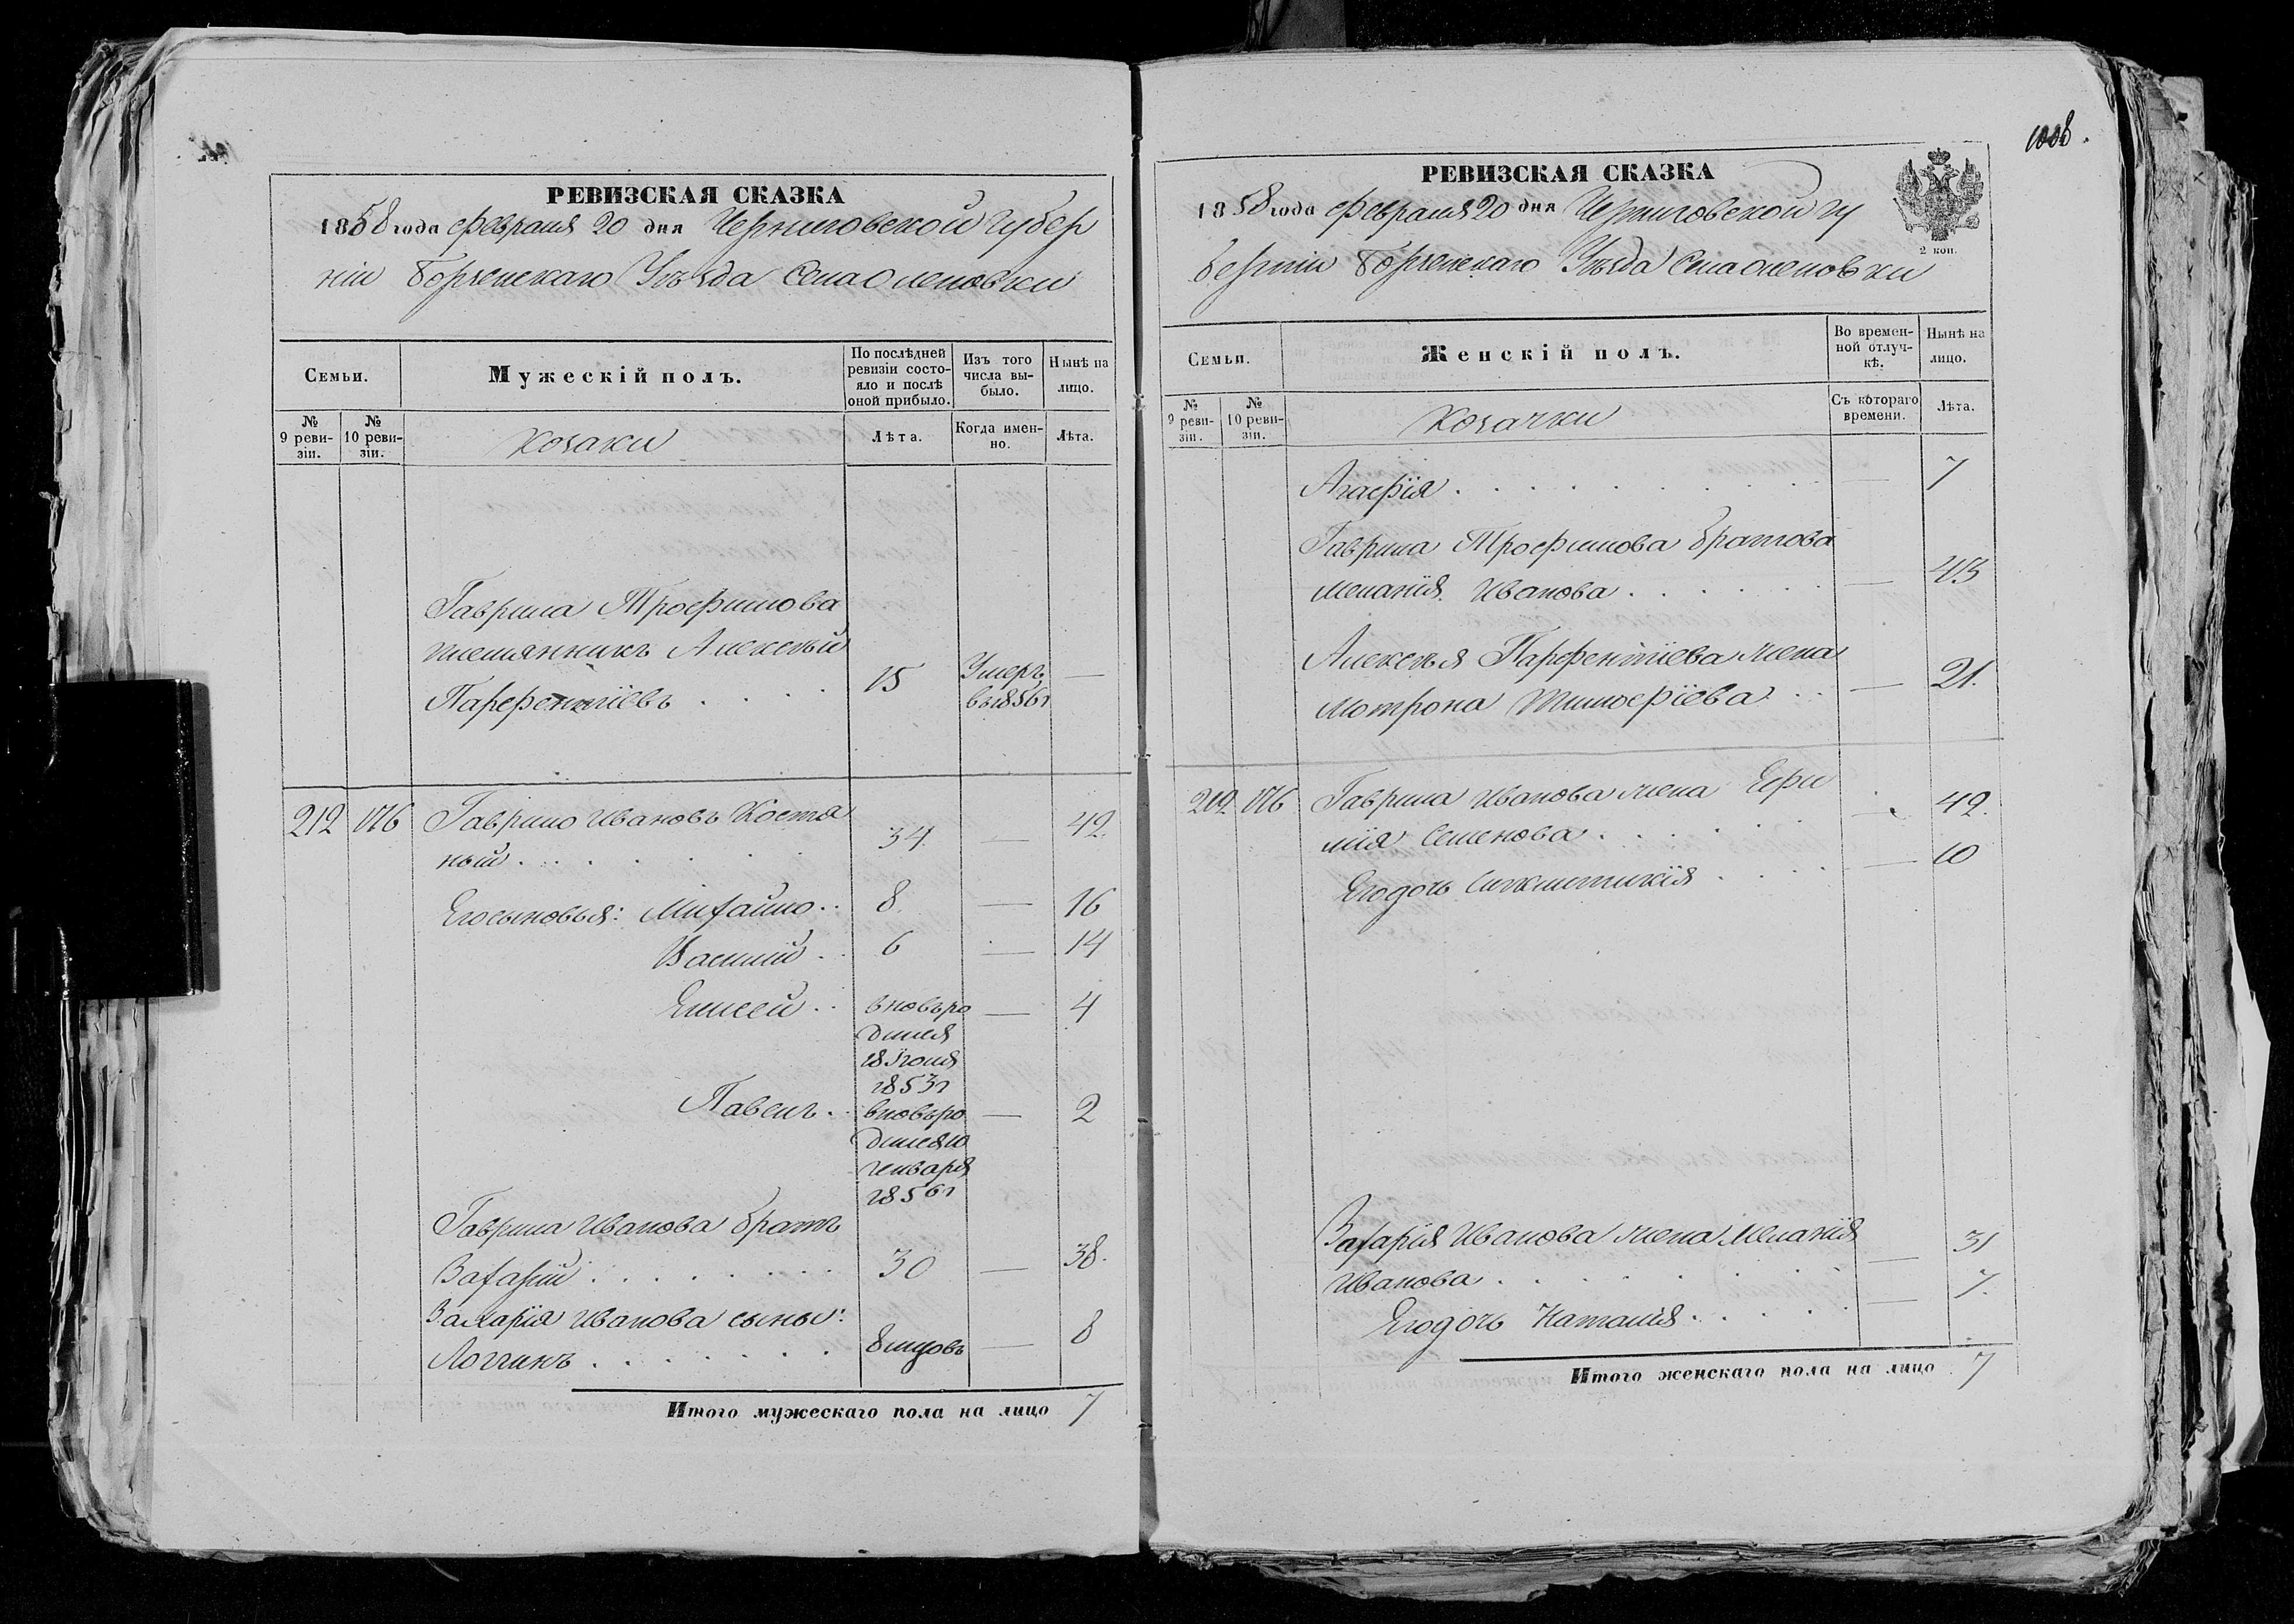 РЕВИЗСКАЯ СКАЗКА
1858 года Февраля 20 дня Черниговской Губер
ніи Борзенскаго Уѣзда Села Оленовки
Семьи.
Мужескій полъ.
По послѣдней ревизіи состояло и послѣ оной прибыло.
Изъ того числа выбыло.
Нынѣ на лицо.
№ 9 ревизіи.
№ 10 ревизіи.
Козаки
Лѣта.
Когда именно.
Лѣта.
Гаврила Трофимова
племянникъ Алексѣй
Парфентіевъ . . . . 15 Умеръ — 
въ 1856 г
212 176 Гаврило Ивановъ Костя
ный . . . . . . 34. — 42.
Его сыновья: Михайло . . 8. — 16
Василій . . 6 — 14
Елисей . . вновь ро — 4
дился
18 Іюля
1853 г
Павелъ . . вновь ро — 2
дился 10
Генваря
1856 г
Гаврила Иванова братъ
Захарій . . . . . . . 30 — 38.
Захарія Иванова сынъ:
Логгинъ . . . . . . . 8 мцовъ — 8
Итого мужескаго пола на лицо 7
1008.
РЕВИЗСКАЯ СКАЗКА
1858 года Февраля 20 дня Черниговской Гу
берніи Борзенскаго Уѣзда Села Оленовки
2 коп.
Семьи.
Женскій полъ.
Во временной отлучкѣ.
Нынѣ на лицо.
№ 9 ревизіи.
№ 10 ревизіи.
Козачки
Съ котораго времени.
Лѣта.
Агафія . . . . . . . . — 7
Гаврила Трофимова братова
Меланія Иванова . . . . . — 43
Алексѣя Парфентіева жена
Мотрона Тимофѣева . . — 21.
212 176 Гаврила Иванова жена Ефи
мія Семенова . . . . . — 42.
Его дочь . . . . — 10
Захарія Иванова жена Меланія
Иванова . . . . . . . — 31
Его дочь Наталія . . . . . — 7.
Итого женскаго пола на лицо 7